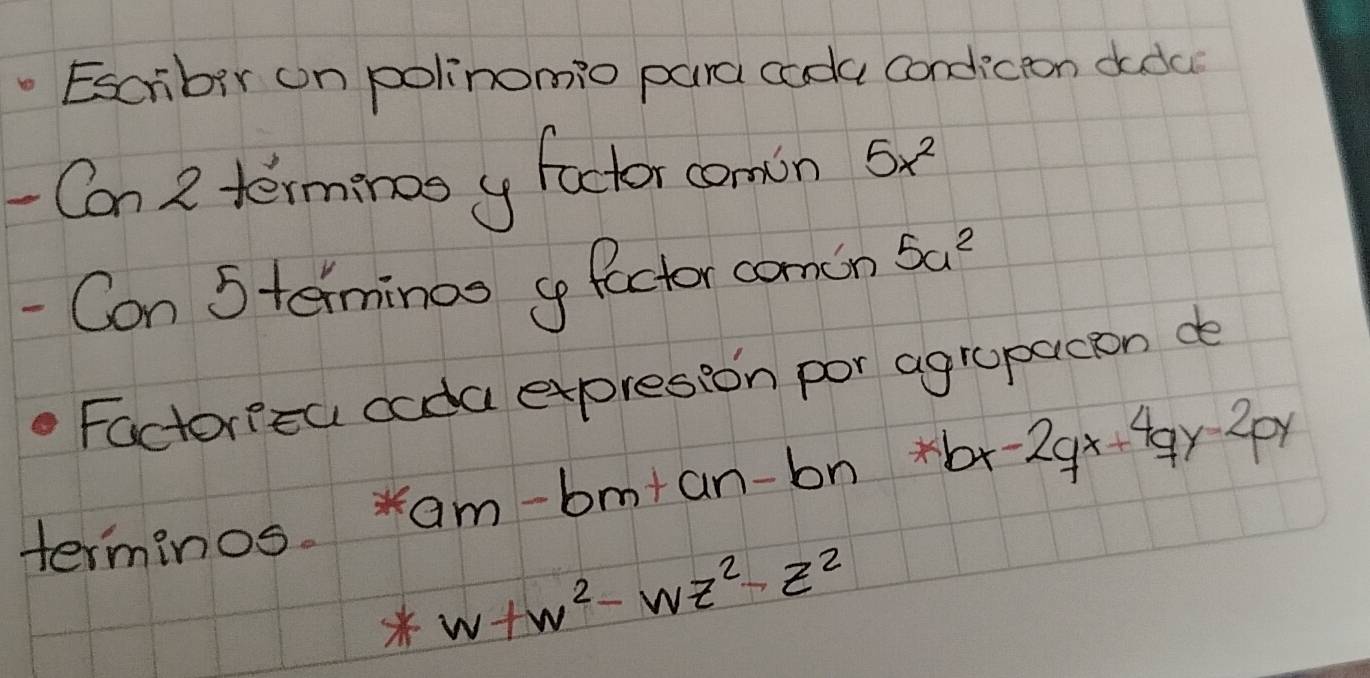 • Escribir un polinomio para cada condición dada:
- Con 2 términos y factor común 5x²
- Con 5 términos y factor común 5a²
• Factoriza cada expresión por agrupación de
términos. *am-bm+an-bn *bx-2qx+4qy-2py
*w+w²-wz²-z²